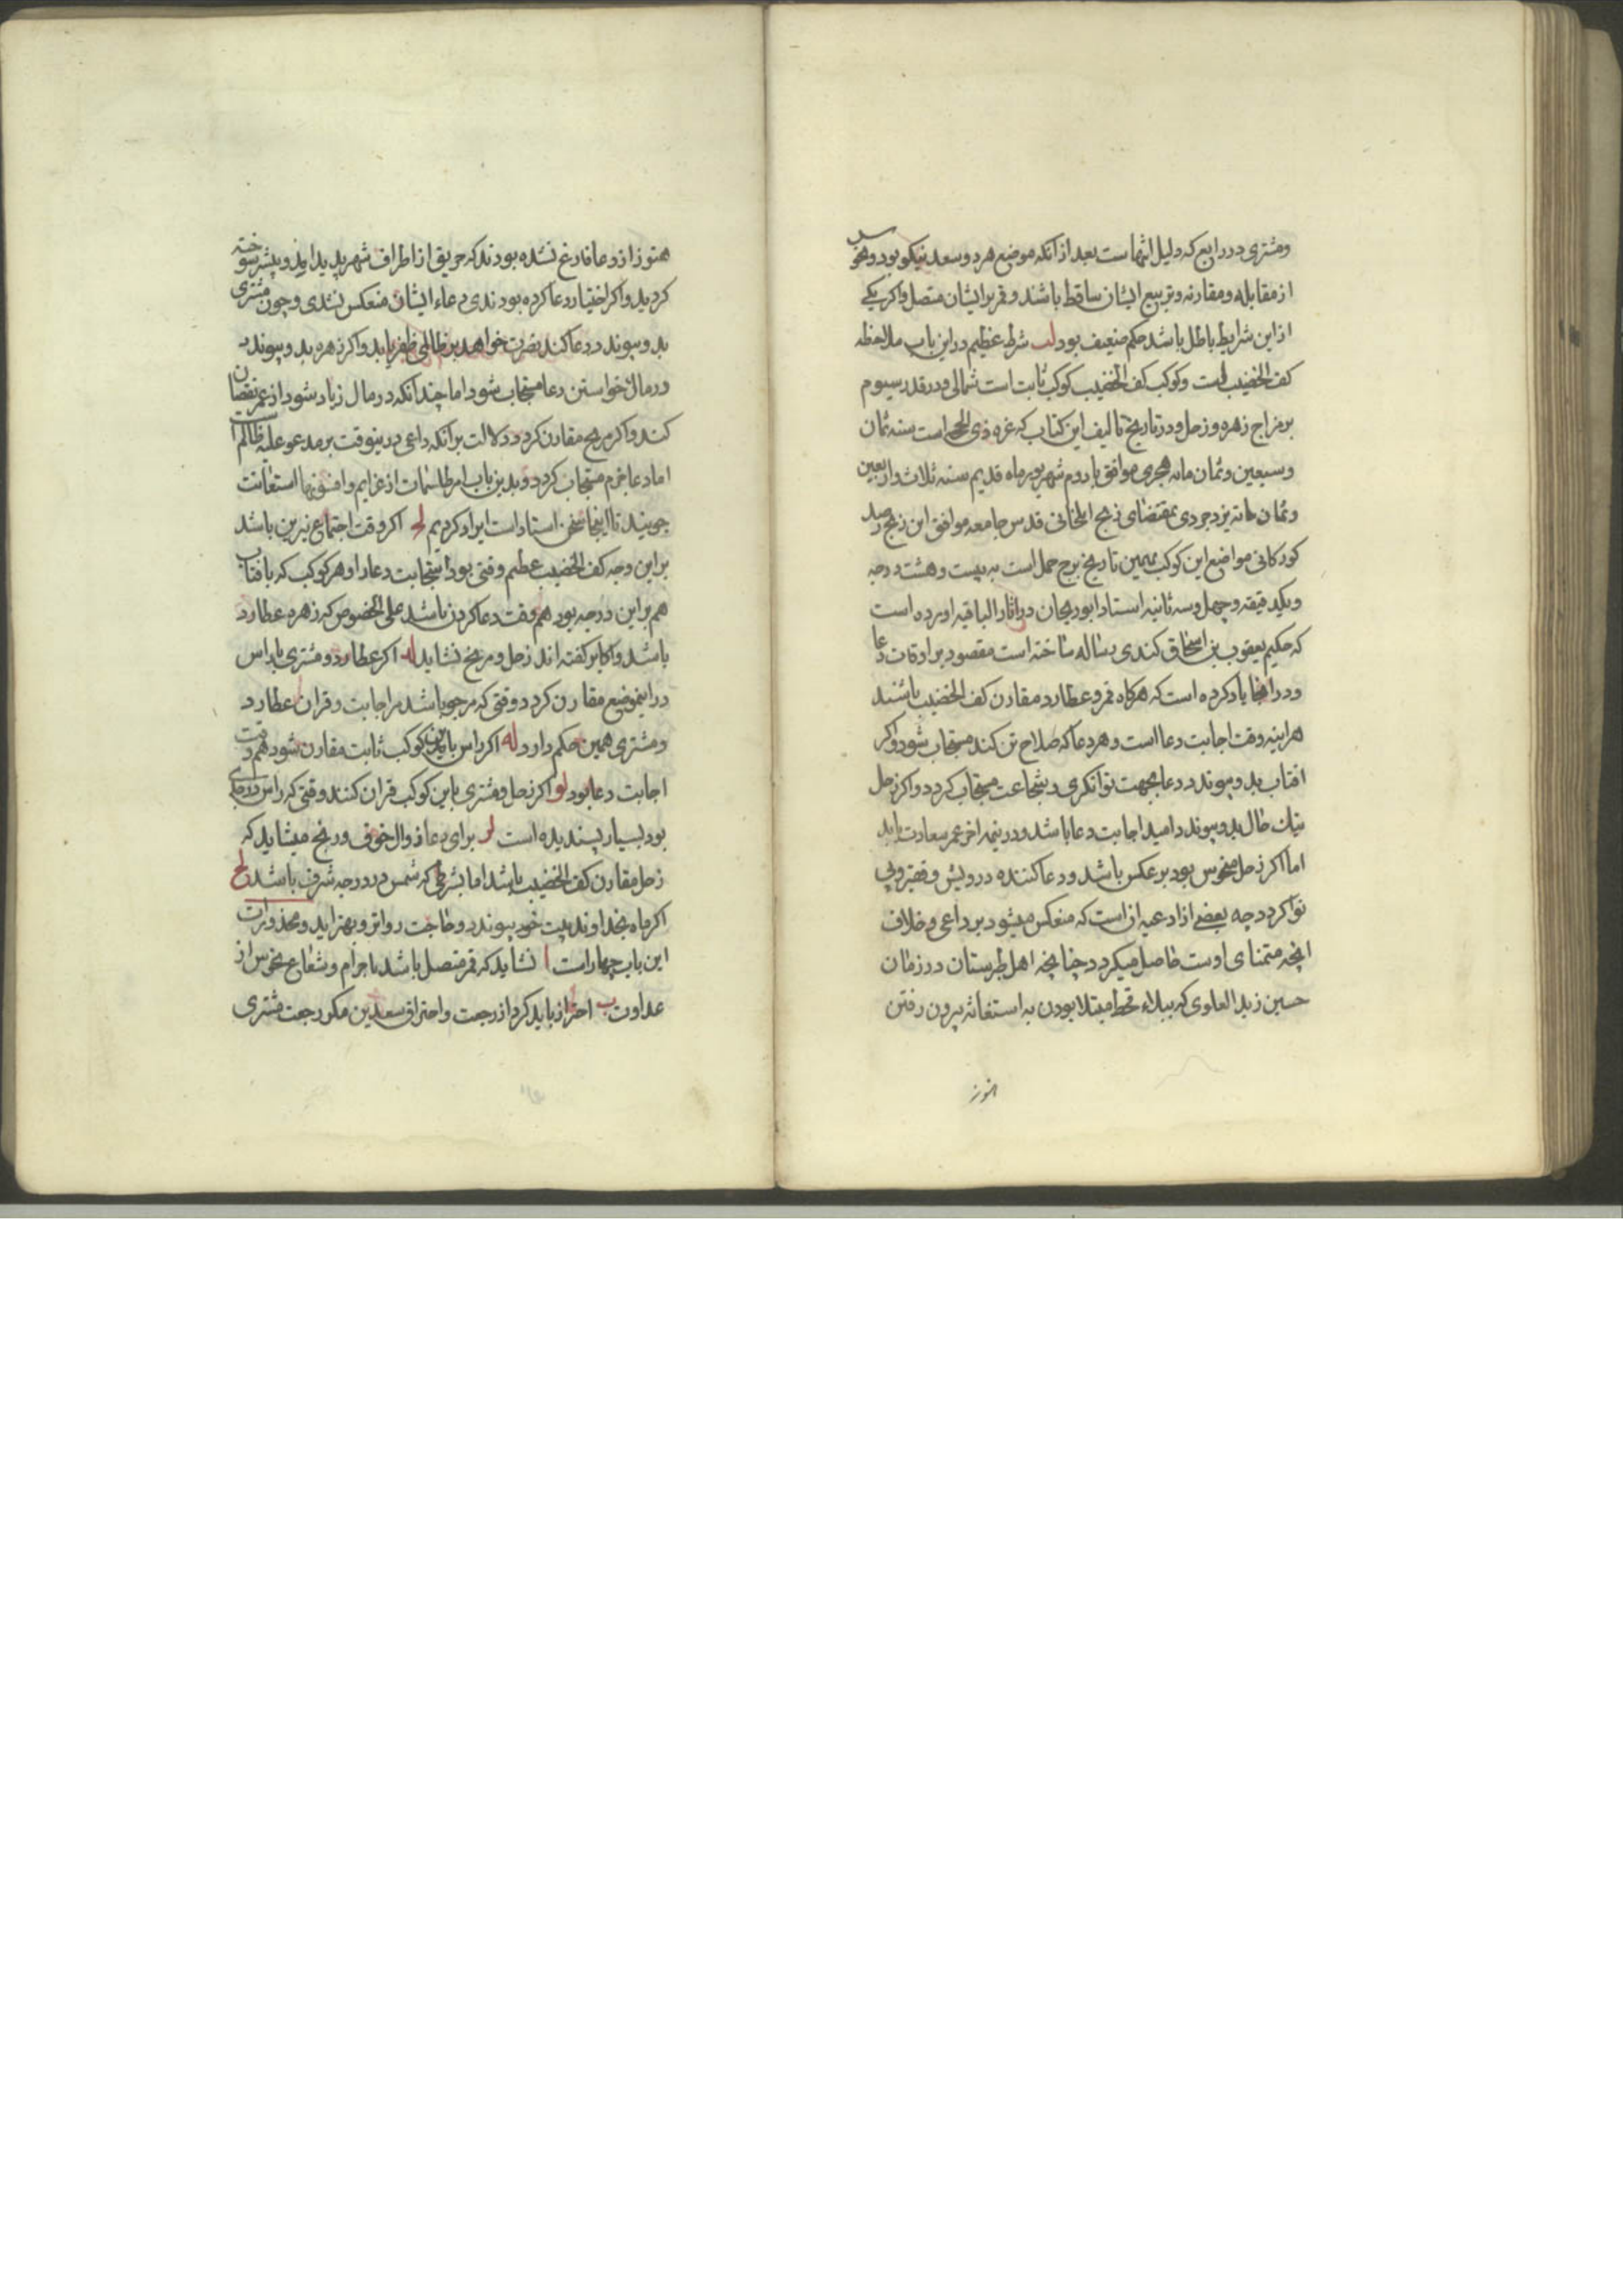 ومشتری در رابع که دلیل انتهاست بعد از آنکه موضع هر دو سعد نیکو بود و نحوس
از مقابله و مقارنه و تربیع ایشان ساقط باشند و قمر بایشان متصل و اکر یکی
ازین شرایط باطل باشد حکم ضعیف بود لب شرط عظیم در این باب ملاحظه
کف الخضیب است و کوکب کف الخضیب کوکب ثابت است شمالی و در قدر سیوم
بر مزاج زهره و زحل و در تاریخ تالیف این کتاب که غره ذی الحجه است سنه ثمان
و سبعین و ثمان مائه هجری موافق با دوم شهریور ماه قدیم سنه ثلاث و اربعین
و ثمان مائه یزدجردی بمقتضای زیج ایلخانی قدس جامعه موافق این زیج رصد
کورکانی مواضع این کوکب بهمین تاریخ برج حمل است به بیست و هشت درجه
و یکدقیقه و چهل و سه ثانیه استاد ابوریحان در آثار الباقیه آورده است
که حکیم یعقوب بن اسحاق کندی رساله ساخته است مقصود بر اوقات دعا
و در آنجا یاد کرده است که هرکاه قمر و عطارد مقارن کف الخضیب باشند
هر اینه وقت اجابت دعا است و هر دعا که صلاح تن کند مستجاب شود و اکر
افتاب بدو پیوندد دعا بجهت توانکری و شجاعت مستجاب کردد و اکر زحل
نیک حال بدو پیوندد امید اجابت دعا باشد و در نیمه اخر عمر سعادت یابد
اما اکر زحل منحوس بود بر عکس باشد و دعا کننده درویش و فقیر و بی
نوا کردد چه بعضی از ادعیه انست که منعکس میشود بر داعی و خلاف
انچه متمنای اوست حاصل میکردد چنانچه اهل طبرستان در زمان
حسین زید العلوی که ببلاء قحط مبتلا بودن به استغاثه بیرون رفتن
هنوز
هنوز از دعا فارغ نشده بودند که حریق از اطراف شهر پدید امد و بیشتر سوخته
کردید و اکر اختیار دعا کرده بودندی دعاء ایشان منعکس نشدی و چون مشتری
بدو پیوندد و دعا کند نصرت خواهد بر ظالمی ظفر یابد و اکر زهره بدو پیوندد
در مال خواستن دعا مستجاب شود اما چندانکه در مال زیاد شود از عمر نقصان
کند و اکر مریخ مقارن کردد دلالت بر آنکه داعی در ینوقت بر مدعو علیه ظالم است
اما دعا خرم مستجاب کردد و بدین باب امر طلسمات از عزایم و افسونها استعانت
جویند تا اینجا سخن استاد است ایراد کردیم لج اکر وقت اجتماع نیرین باشد
بر این وجه کف الخضیب عظیم وقتی بود استجابت دعا را و هر کوکب که با افتاب
هم بر این درجه بود هم وقت دعا کردن باشد علی الخصوص که زهره عطارد
باشد و اکابر کفته اند زحل و مریخ نشاید لد اکر عطارد و مشتری با راس
در اینموضع مقارن کردد وقتی که مرجو باشد مر اجابت و قران عطارد
و مشتری همین حکم دارد له اکر راس باین کوکب ثابت مقارن شود هم وقت
اجابت دعا بود لو اکر زحل و مشتری باین کوکب قران کنند وقتی که راس در
بود بسیار پسندیده است لز برای دعا زوال خوف و رنج میشاید که
زحل مقارن کف الخضیب باشد اما بشرطی که شمس در درجه شرف باشد لح
اکر ماه بخداوند بیت خود پیوندد حاجت رواتر و بهتر آید و محذورات
این باب چهار است ا نشاید که قمر متصل باشد باجرام و شعاع نحوس از
عداوت ب احتراز باید کرد از رجعت و احتراق سعدین مکر رجعت مشتری